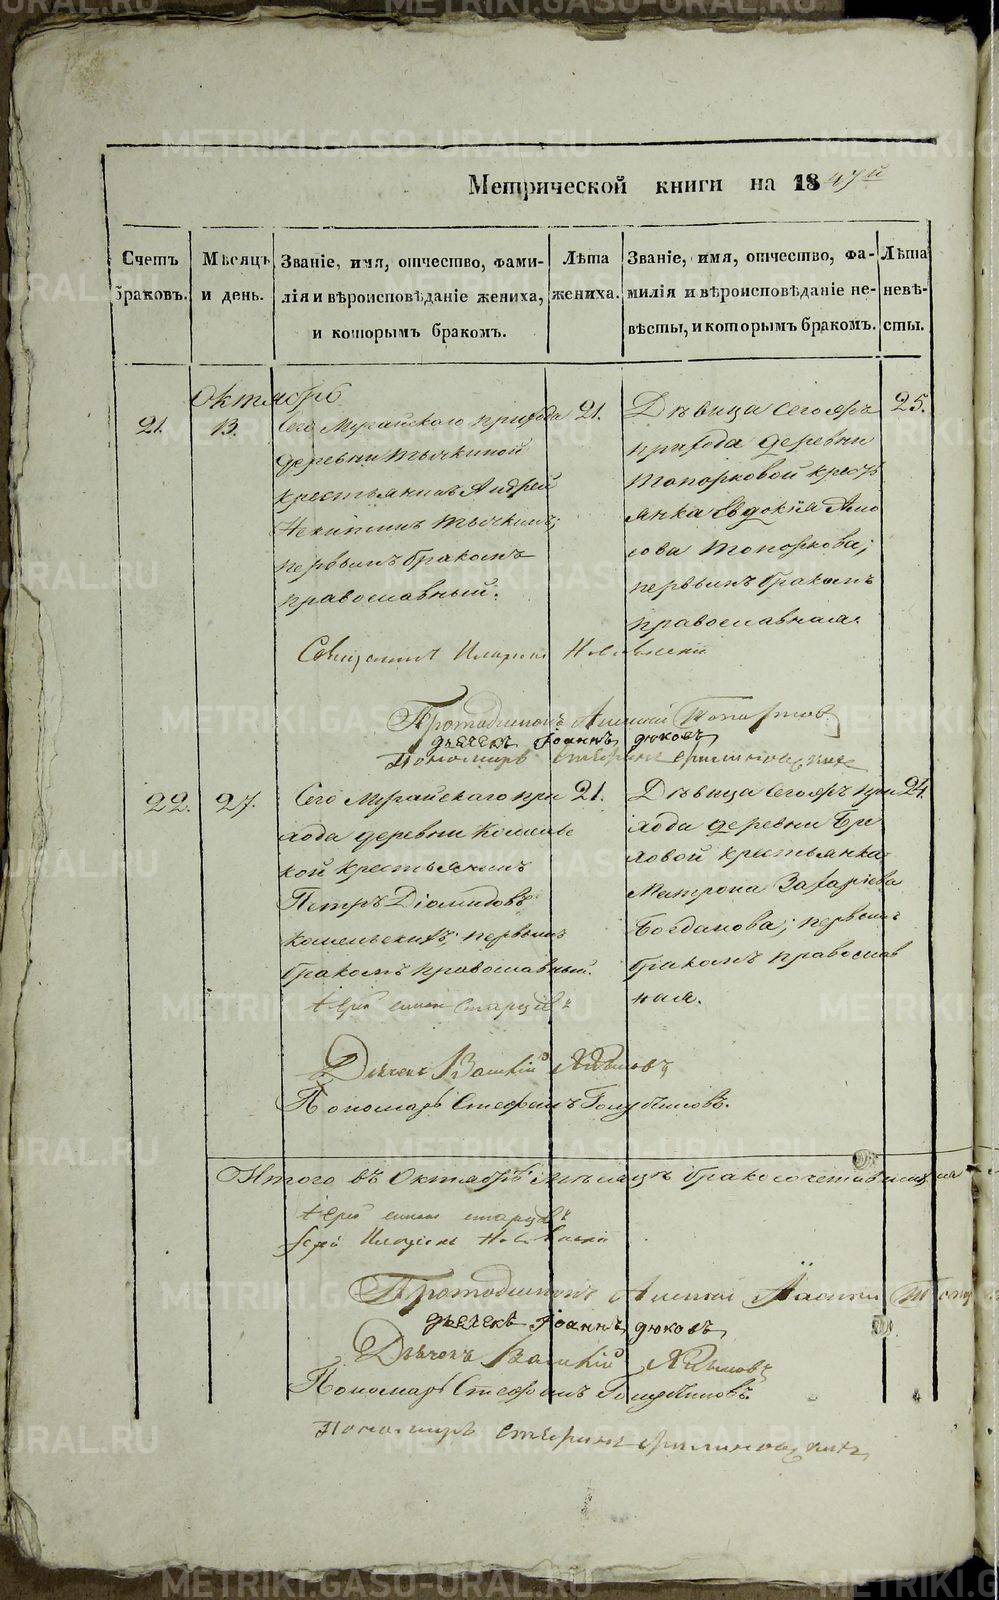 Метрической книги на 1847й
Счетъ браковъ.
Мѣсяцъ и день.
Званіе, имя, отчество, фами-
лія и вѣроисповѣданіе жениха,
и которымъ бракомъ.
Лѣта
жениха.
Званіе, имя, отчество, фа-
милія и вѣроисповѣданіе не-
вѣсты, и которымъ бракомъ.
Лѣта
невѣ-
сты.
Октябрь
21.
13.
Сего Мурайского прихода
деревни Тычкиной
крестьянинъ Андрей
Тычкинъ;
первымъ бракомъ
православный.
21.
Дѣвица сегожъ
прихода деревни
Топорковой кресть
янка Евдокія
Топоркова;
первымъ бракомъ
православная.
25.
Священникъ
Протодіаконъ Алексій
дьячекъ Іоаннъ дюковъ
Пономарь
22.
27.
Сего Мурайскаго при
хода деревни
кой крестьянинъ
Петръ Діомидовъ
первымъ
бракомъ православный.
21.
Дѣвица сегожъ при
хода деревни
ловой крестьянка
Матрона Захаріева
Богданова; первымъ
бракомъ православ
ная.
24.
Старцевъ
Дьячекъ Василій
Пономарь Стефанъ Голубчиковъ.
Итого въ Октябрѣ мѣсяцѣ бракосочетавшихся
старцевъ
Протодіаконъ Алексій
дьячекъ Іоаннъ дюковъ
Дьячекъ Василій
Пономарь Стефанъ Голубчиковъ
Пономарь
METRIKI.GASO-URAL.RU